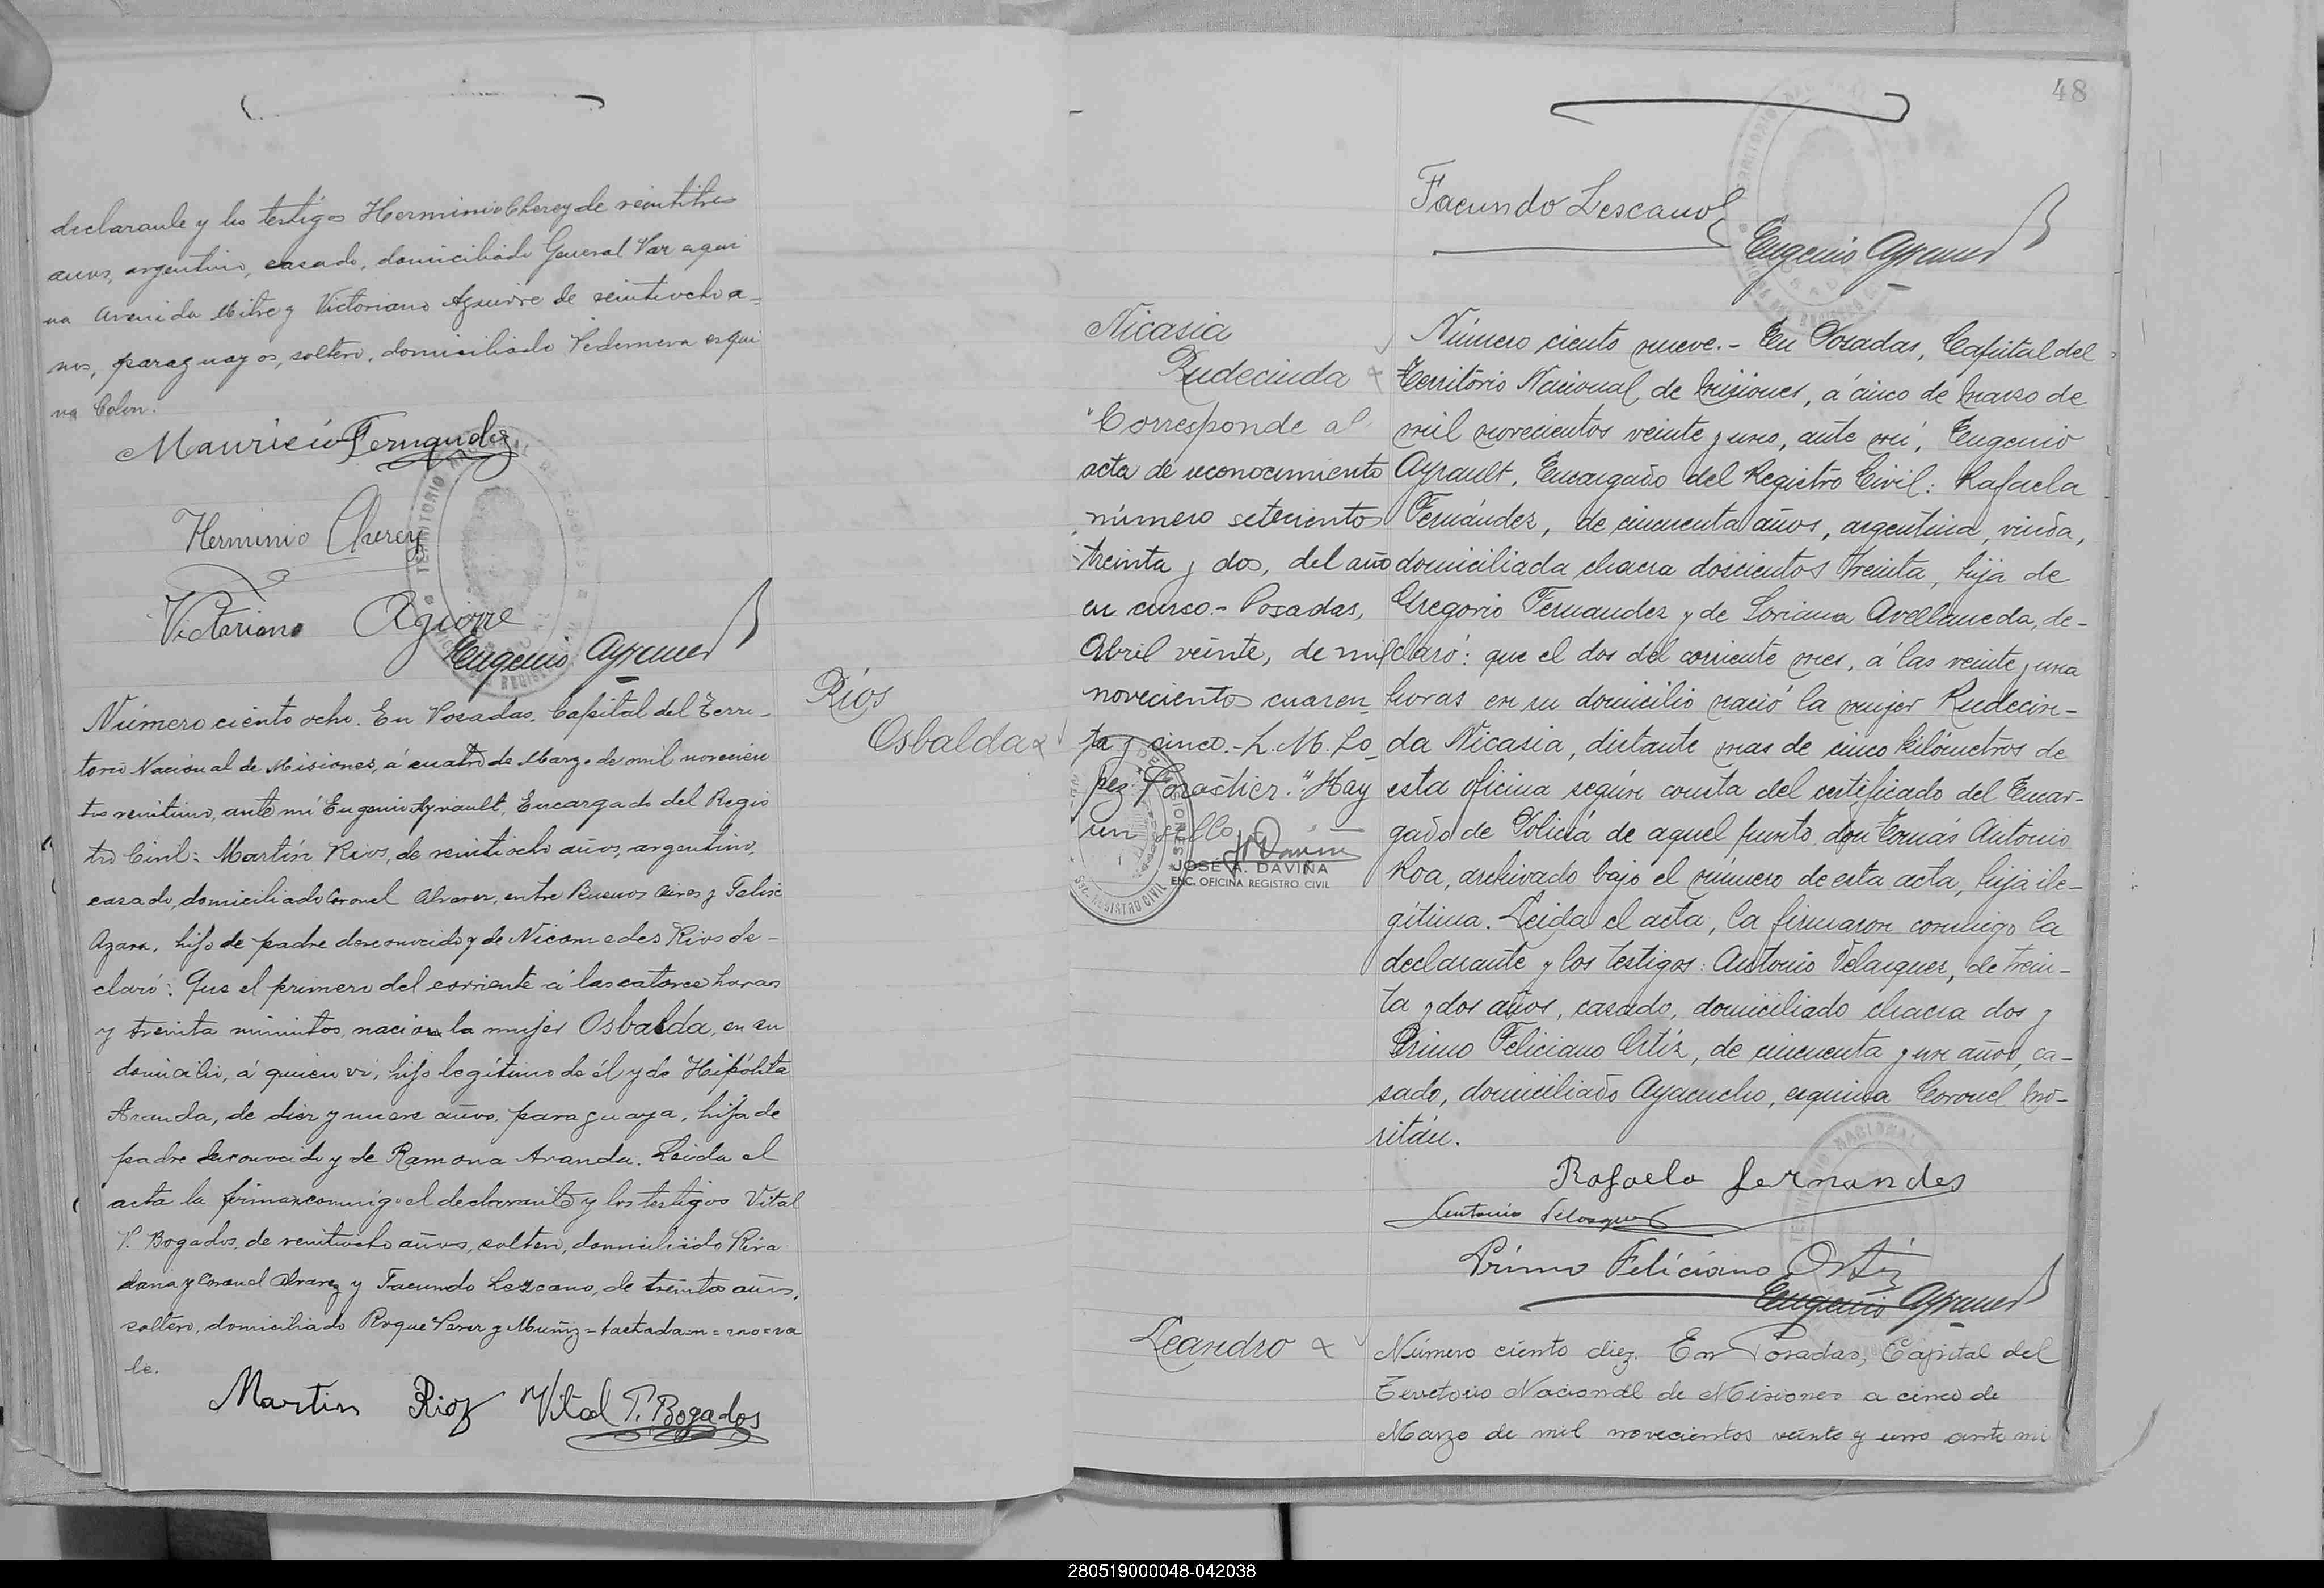 declarante y los testigos Herminio Cherey de veintitres
anos, argentino, casado, domiciliado General Paz esqui
na Avenida Mitre y Victoriano Aguirre de veintiocho a=
nos, paraguayos, soltero, domiciliado Pedernera esqui
na Colon.
Mauricio Fernandez
Herminio Cherey
Victoriano Aguirre
Eugenio Ayrault
Ríos
Osbalda
Número ciento ocho. En Posadas, Capital del Terri-
torio Nacional de Misiones, á cuatro de Marzo de mil novecien
tos veintiuno, ante mí Eugenio Ayrault, Encargado del Regis
tro Civil: Martín Rios, de veintiocho años, argentino,
casado, domiciliado Coronel Alvarez, entre Buenos Aires y Felix
Azara, hijo de padre desconocido y de Nicomedes Rios de-
claró: Que el primero del corriente á las catorce horas
y treinta minutos, nacio la mujer Osbalda, en su
domicilio, á quien vi, hijo legítimo de él y de Hipólita
Aranda, de diez y nueve años, paraguaya, hija de
padre desconocido y de Ramona Aranda. Leida el
acta la firman conmigo el declarante y los testigos Vital
P. Bogados, de veintiocho años, soltero, domiciliado Riva
davia y Coronel Alvarez y Facundo Lezcano, de treinta años,
soltero, domiciliado Roque Perez y Muñiz = tachada = n = no = va
le.
Martin Rioz Vital P. Bogados
48
Facundo Lescano
Eugenio Ayrault
Nicasia
Rudecinda
"Corresponde al
acta de reconocimiento
número setecientos
treinta y dos, del año
en curso.- Posadas,
Abril veinte, de mil
novecientos cuaren_
ta y cinco.- L. M. Lo_
pez Forastier." Hay
un sello
JOSÉ A. DAVIÑA
ENC. OFICINA REGISTRO CIVIL
Número ciento nueve.- En Posadas, Capital del
Territorio Nacional de Misiones, á cinco de Marzo de
mil novecientos veinte y uno, ante mí, Eugenio
Ayrault, Encargado del Registro Civil: Rafaela
Fernández, de cincuenta años, argentina, viuda,
domiciliada chacra doscientos treinta, hija de
Gregorio Fernandez y de Loriana Avellaneda, de-
claró: que el dos del corriente mes, á las veinte y una
horas en su domicilio nació la mujer Rudecin-
da Nicasia, distante mas de cinco kilómetros de
esta oficina según consta del certificado del Encar-
gado de Policiá de aquel punto don Tomás Antonio
Roa, archivado bajo el número de esta acta, hija ile-
gítima. Leida el acta, la firmaron conmigo la
declarante y los testigos: Antonio Velasquez, de trein-
ta y dos años, casado, domiciliado chacra dos y
Primo Feliciano Ortíz, de cincuenta y un años, ca-
sado, domiciliado Ayacucho, esquina Coronel Mo-
ritán.
Rafaela fernandes
Antonio Velasquez
Primo Feliciano Ortiz
Eugenio Ayrault
Leandro
Número ciento diez. En Posadas, Capital del
Territorio Nacional de Misiones a cinco de
Marzo de mil novecientos veinte y uno ante mi
280519000048-042038